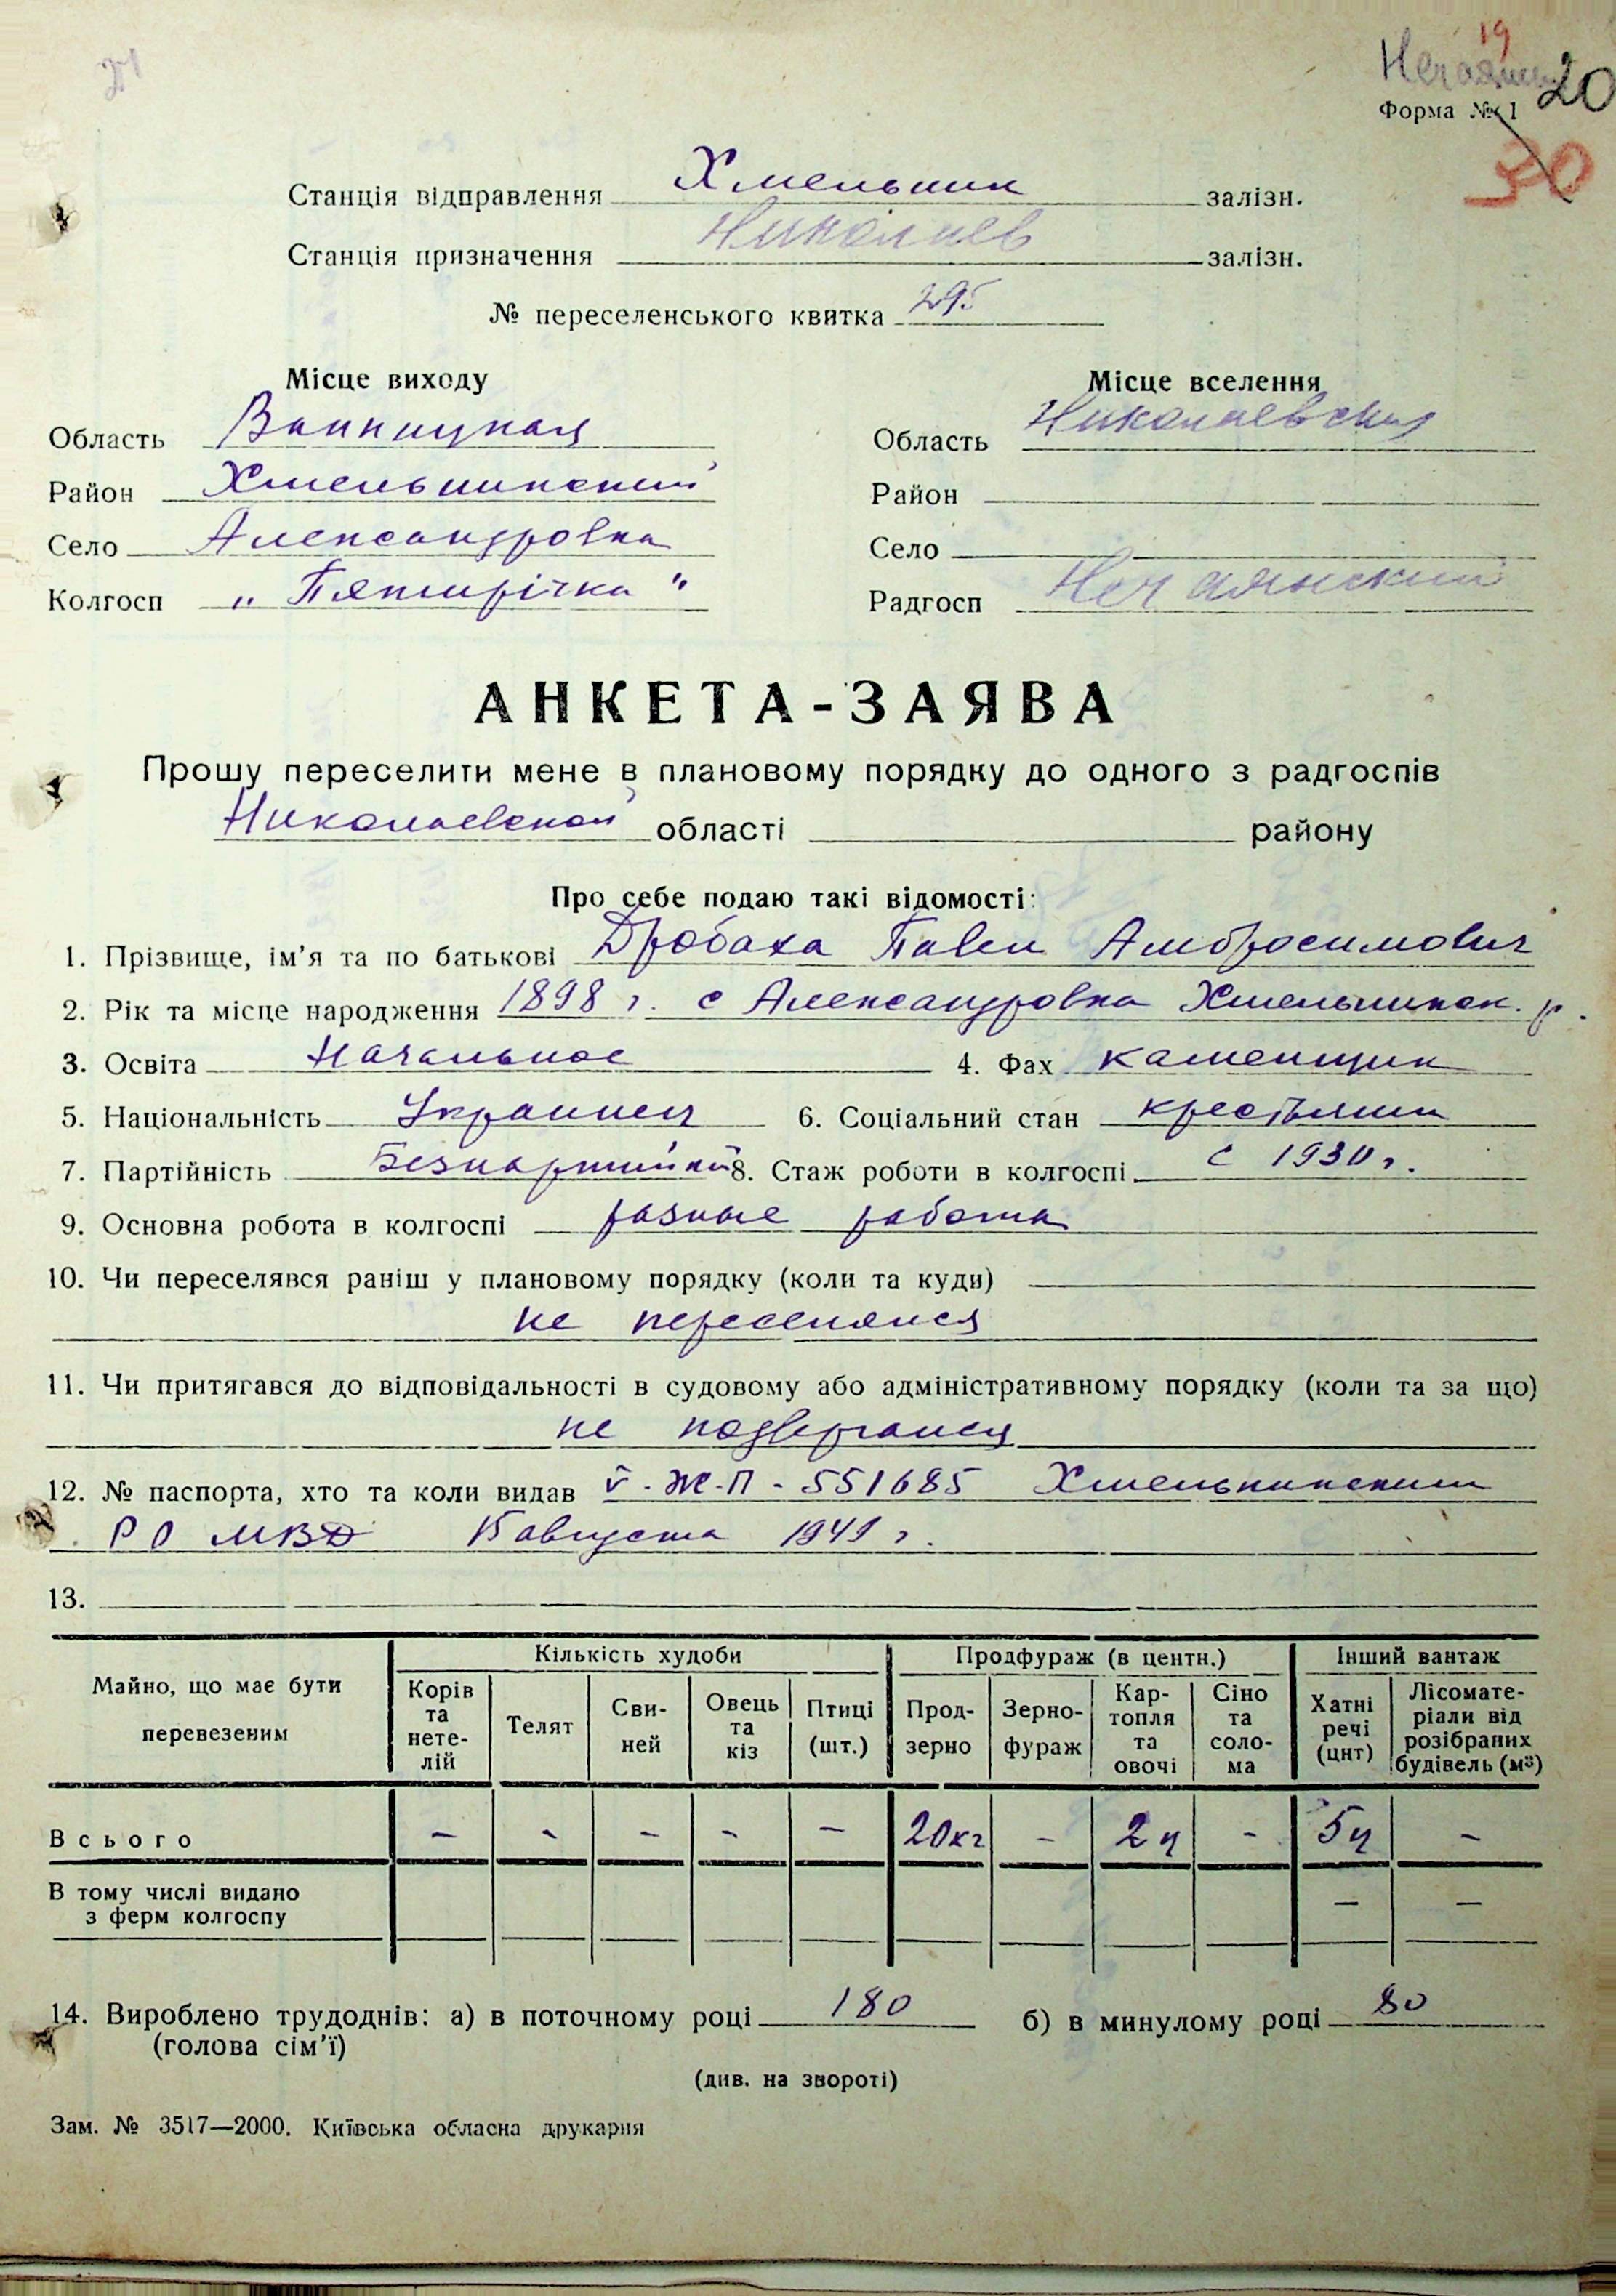 19
20
Форма № 1
30
Станція відправлення Хмельник залізн.
Станція призначення Николаев залізн.
№ переселенського квитка 295
Місце виходу Місце вселення
Область Винницкая Область Николаевская
Район Хмельникский Район
Село Александровка Село
Колгосп „Пятирічка" Радгосп Нечаянский
АНКЕТА-ЗАЯВА
Прошу переселити мене в плановому порядку до одного з радгоспів
Николаевской області району
Про себе подаю такі відомості:
1. Прізвище, ім'я та по батькові Дробаха Павел Амбросимович
2. Рік та місце народження 1898 г. с Александровка Хмельникск. р.
3. Освіта Начальное 4. Фах каменщик
5. Національність Украинец 6. Соціальний стан крестьянин
7. Партійність Безпартийный 8. Стаж роботи в колгоспі с 1930 г.
9. Основна робота в колгоспі разные работа
10. Чи переселявся раніш у плановому порядку (коли та куди)
не переселялся
11. Чи притягався до відповідальності в судовому або адміністративному порядку (коли та за що)
не подвергался
12. № паспорта, хто та коли видав V-ЖП-551685 Хмельникским
РО МВД 15 августа 1949 г.
13.
Майно, що має бути перевезеним Кількість худоби Продфураж (в центн.) Інший вантаж
Корів та нетелій Телят Свиней Овець та кіз Птиці (шт.) Продзерно Зернофураж Картопля та овочі Сіно та солома Хатні речі (цнт) Лісоматеріали від розібраних будівель (м³)
Всього - - - - - 20кг - 2ц - 5ц -
В тому числі видано з ферм колгоспу — —
14. Вироблено трудоднів: а) в поточному році 180 б) в минулому році 80
(голова сім'ї)
(див. на звороті)
Зам. № 3517—2000. Київська обласна друкарня